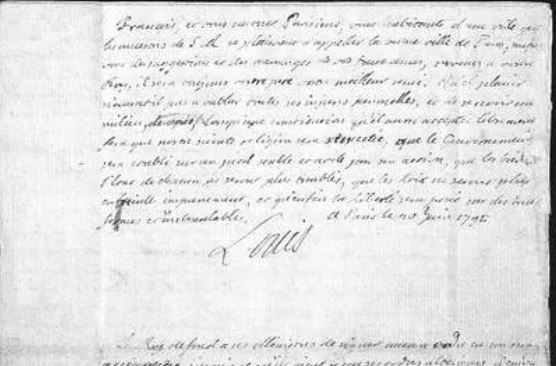 Francois, et vous Parisiens, vous habitants d'une ville que
les ancestres de S.M. se plaisoient a appeller la bonne ville de Paris, mefiez
vous des suggestions et des mensonges de vos faux amis, revenez a votre
Roy, il sera toujours votre pere votre meilleur ami. Quel plaisir
n'auroit il pas a oublier toutes ses injures personnelles, et de se revoir au
milieu de vous, lorsque une constitution qu'il aura acceptée librement
fera que notre sainte religion sera respectée, que le Gouvernement
sera etabli sur un pied stable et son action, que les biens
l'etat de chacun ne seront plus troublés, que les loix ne seront plus
impunement, et qu'enfin la liberté sera posée sur des bases
fermes et inebranlables. a Paris le 20 Juin 1791
Louis
Le Roy defend a ses ministres de signer aucun ordre en son nom